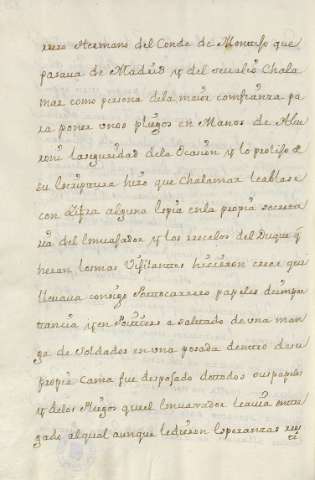 rrero Hermano del Conde de Montijo que
pasaua de Madrid y del se ualio Chala
mar como persona dela maior comfianza pa
ra poner unos pliegos en Manos de Albe
roni la seguridad dela Ocasion y lo prolijo de
su Escriptura hizo que Chalamar
con Zifra alguna Copia enla propia secreta
ria del Embaxador y los rrecelos del Duque q
heran los mas Vijilantes hicieron creer que
lleuaua consigo Portocarrero papeles deimpor
tancia y en Poitiers asaltado de una man
ga de soldados en una posada dentro de su
propia Cama fue despojado de todos sus papeles
y delos Pliegos que el Embaxador leauia entre
gado al qual aunque ledieron esperanzas